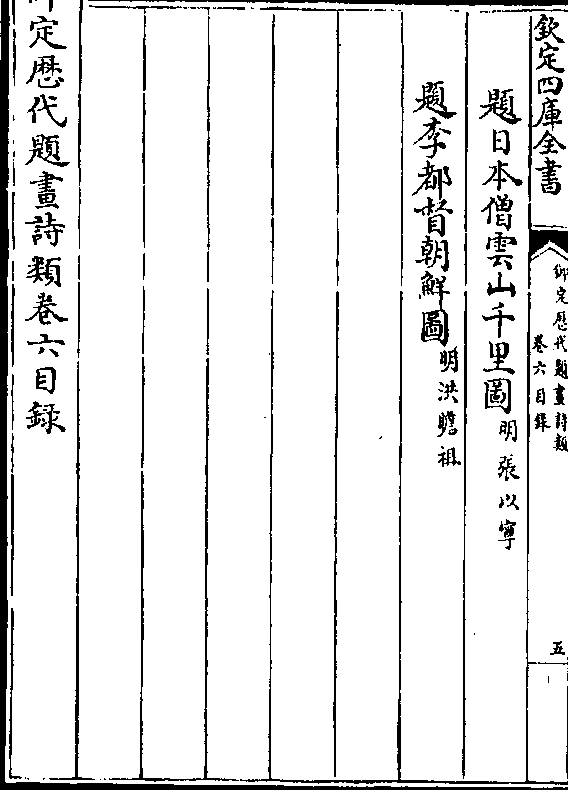 欽定四庫全書
御定歴代題畫詩類
卷六目録
五
題日本僧雲山千里圖明張以寧
題李都督朝鮮圖明洪瞻祖
御定歴代題畫詩類卷六目録